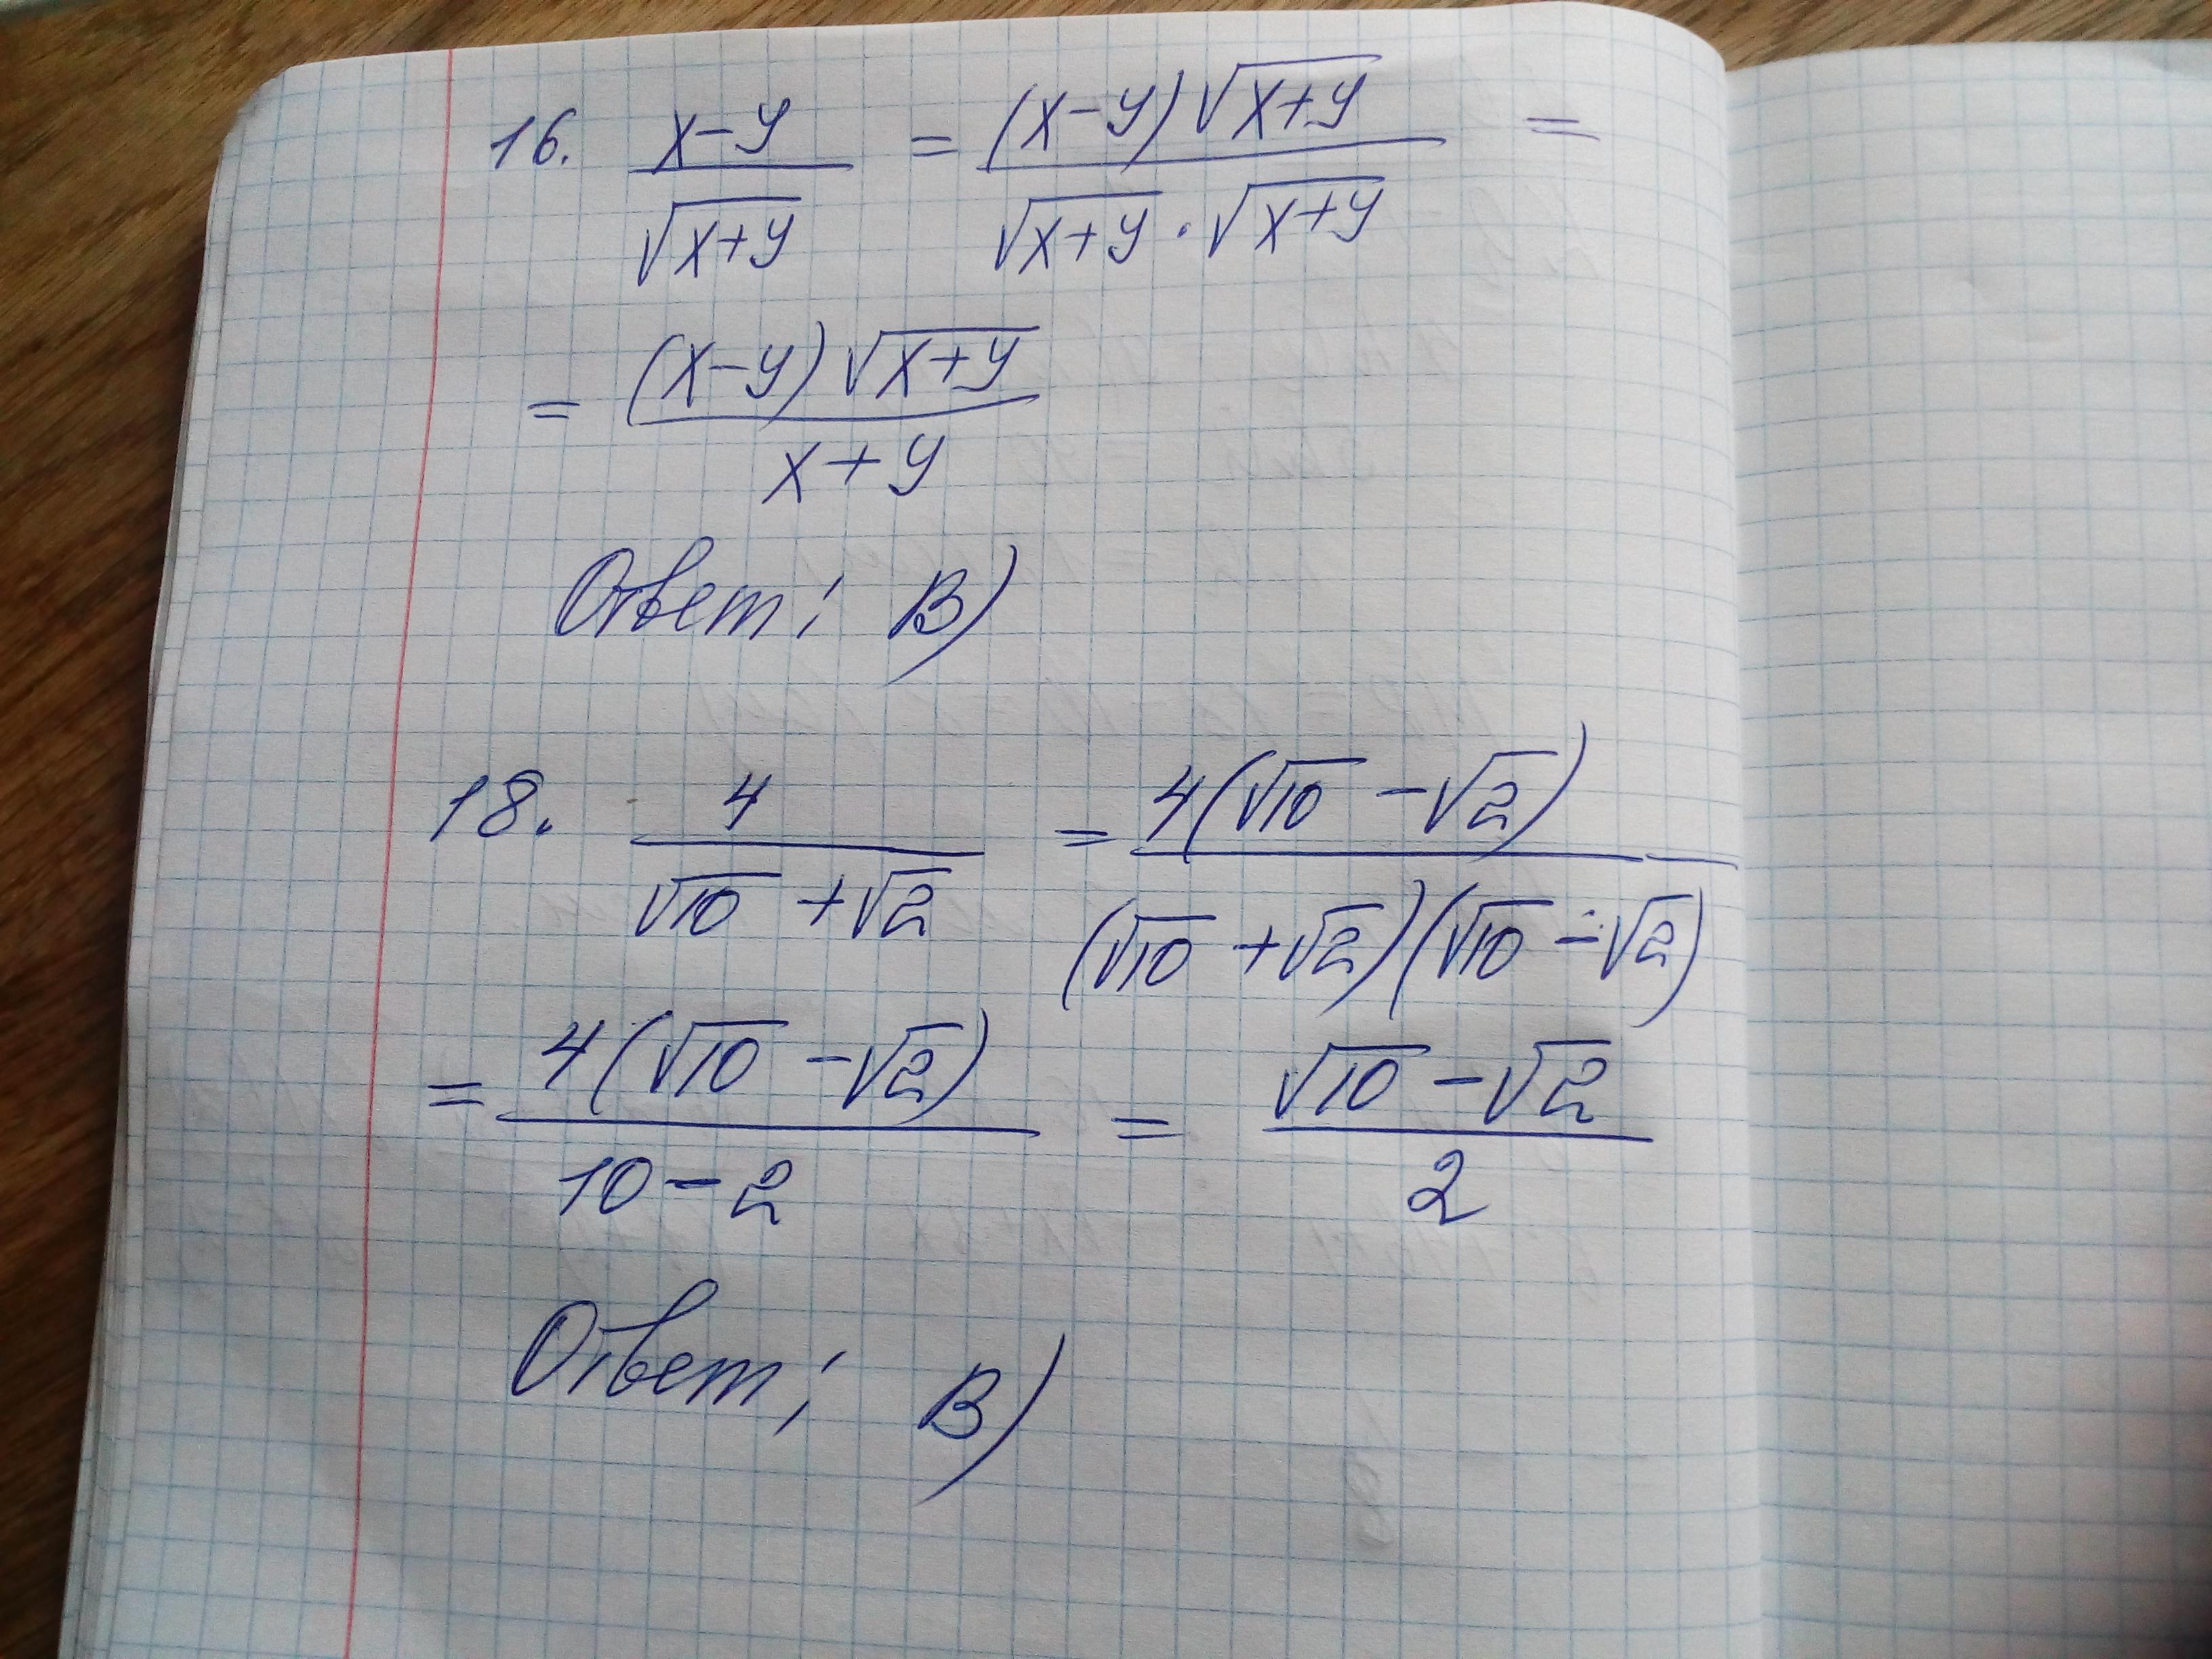 16. (x-y)/√(x+y) = ((x-y)√(x+y))/(√(x+y)·√(x+y)) =
= ((x-y)√(x+y))/(x+y)
Ответ: В)
18. 4/(√10+√2) = 4(√10-√2)/((√10+√2)(√10-√2))
= 4(√10-√2)/(10-2) = (√10-√2)/2
Ответ: В)